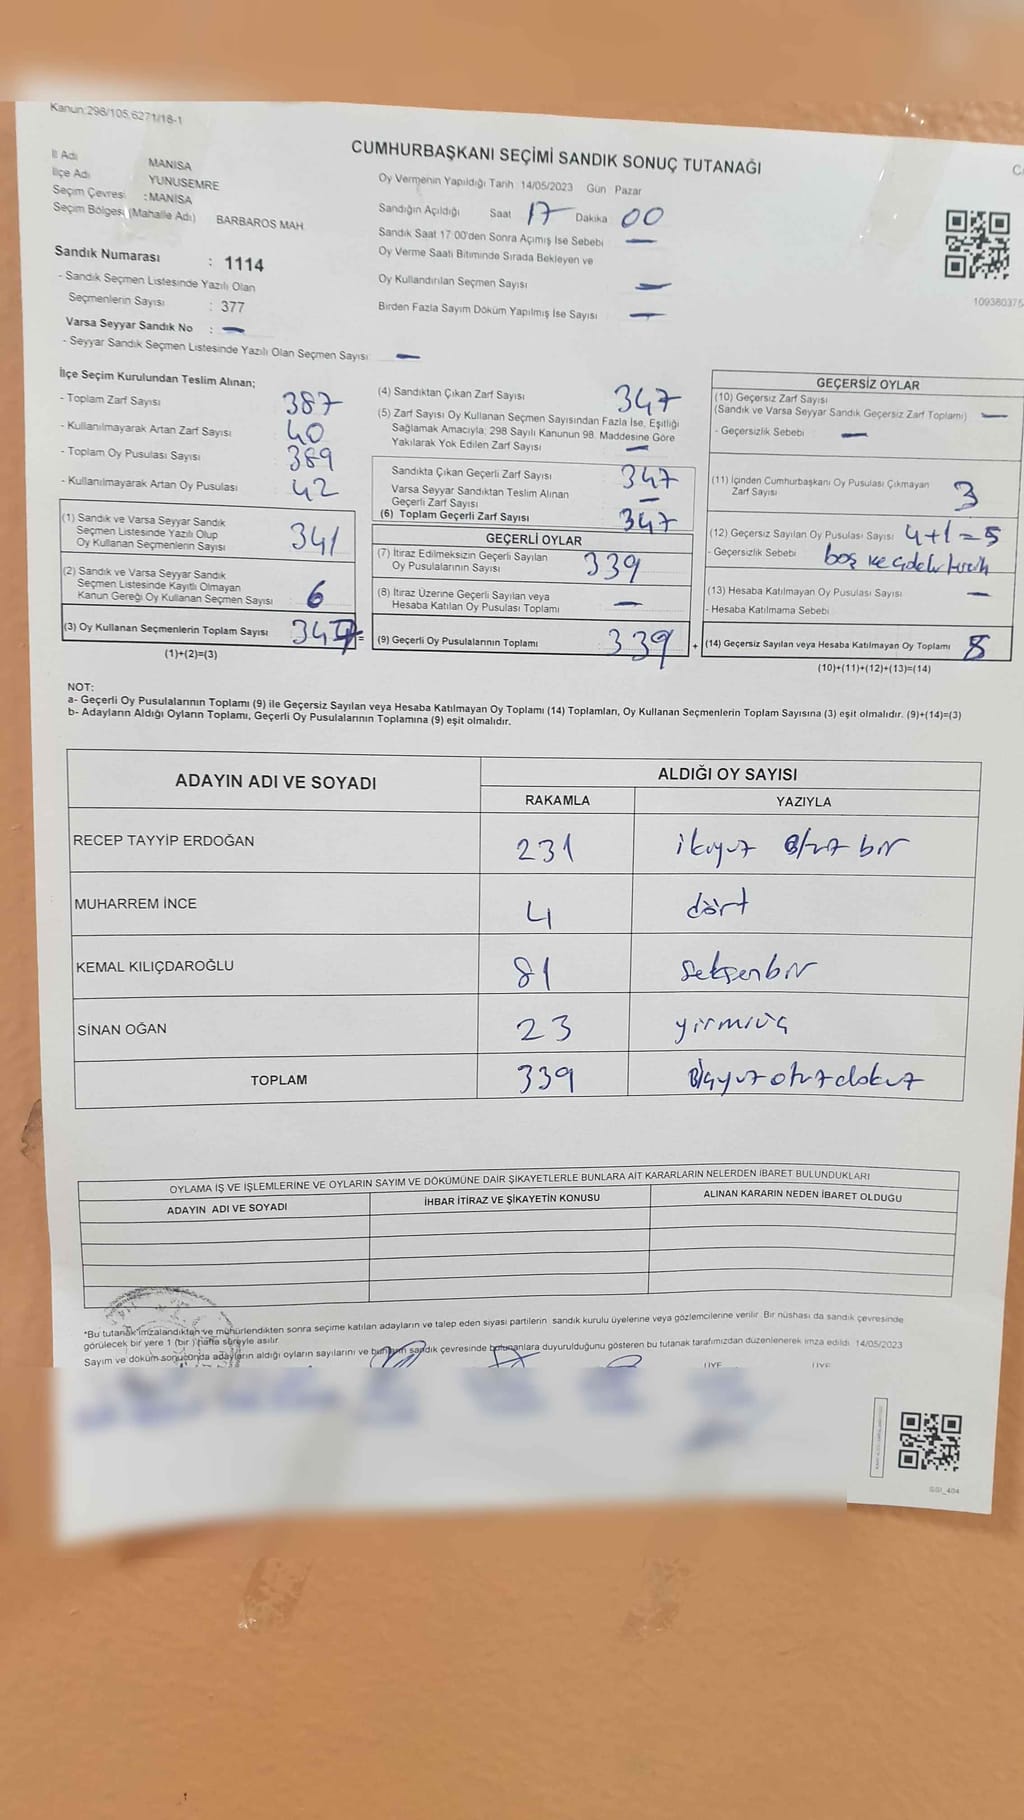 Kanun:298/105,6271/18-1
CUMHURBAŞKANI SEÇİMİ SANDIK SONUÇ TUTANAĞI
İl Adı MANİSA
İlçe Adı YUNUSEMRE
Seçim Çevresi :MANİSA
Seçim Bölgesi (Mahalle Adı) BARBAROS MAH.
Sandık Numarası : 1114
- Sandık Seçmen Listesinde Yazılı Olan
Seçmenlerin Sayısı : 377
Varsa Seyyar Sandık No : —
- Seyyar Sandık Seçmen Listesinde Yazılı Olan Seçmen Sayısı —
Oy Vermenin Yapıldığı Tarih :14/05/2023 Gün : Pazar
Sandığın Açıldığı Saat 17 Dakika 00
Sandık Saat 17:00'den Sonra Açılmış İse Sebebi —
Oy Verme Saati Bitiminde Sırada Bekleyen ve
Oy Kullandırılan Seçmen Sayısı —
Birden Fazla Sayım Döküm Yapılmış İse Sayısı —
109380375
İlçe Seçim Kurulundan Teslim Alınan;
- Toplam Zarf Sayısı 387
- Kullanılmayarak Artan Zarf Sayısı 40
- Toplam Oy Pusulası Sayısı 389
- Kullanılmayarak Artan Oy Pusulası 42
(1) Sandık ve Varsa Seyyar Sandık
Seçmen Listesinde Yazılı Olup
Oy Kullanan Seçmenlerin Sayısı 341
(2) Sandık ve Varsa Seyyar Sandık
Seçmen Listesinde Kayıtlı Olmayan
Kanun Gereği Oy Kullanan Seçmen Sayısı 6
(3) Oy Kullanan Seçmenlerin Toplam Sayısı 347 =
(1)+(2)=(3)
(4) Sandıktan Çıkan Zarf Sayısı 347
(5) Zarf Sayısı Oy Kullanan Seçmen Sayısından Fazla İse, Eşitliği
Sağlamak Amacıyla; 298 Sayılı Kanunun 98. Maddesine Göre
Yakılarak Yok Edilen Zarf Sayısı —
Sandıkta Çıkan Geçerli Zarf Sayısı 347
Varsa Seyyar Sandıktan Teslim Alınan
Geçerli Zarf Sayısı —
(6) Toplam Geçerli Zarf Sayısı 347
GEÇERLİ OYLAR
(7) İtiraz Edilmeksizin Geçerli Sayılan
Oy Pusulalarının Sayısı 339
(8) İtiraz Üzerine Geçerli Sayılan veya
Hesaba Katılan Oy Pusulası Toplamı —
(9) Geçerli Oy Pusulalarının Toplamı 339 +
GEÇERSİZ OYLAR
(10) Geçersiz Zarf Sayısı
(Sandık ve Varsa Seyyar Sandık Geçersiz Zarf Toplamı) —
- Geçersizlik Sebebi —
(11) İçinden Cumhurbaşkanı Oy Pusulası Çıkmayan
Zarf Sayısı 3
(12) Geçersiz Sayılan Oy Pusulası Sayısı 4+1=5
- Geçersizlik Sebebi boş ve
(13) Hesaba Katılmayan Oy Pusulası Sayısı —
- Hesaba Katılmama Sebebi
(14) Geçersiz Sayılan veya Hesaba Katılmayan Oy Toplamı 8
(10)+(11)+(12)+(13)=(14)
NOT:
a- Geçerli Oy Pusulalarının Toplamı (9) ile Geçersiz Sayılan veya Hesaba Katılmayan Oy Toplamı (14) Toplamları, Oy Kullanan Seçmenlerin Toplam Sayısına (3) eşit olmalıdır. (9)+(14)=(3)
b- Adayların Aldığı Oyların Toplamı, Geçerli Oy Pusulalarının Toplamına (9) eşit olmalıdır.
ADAYIN ADI VE SOYADI ALDIĞI OY SAYISI
RAKAMLA YAZIYLA
RECEP TAYYİP ERDOĞAN 231 ikiyüz otuz bir
MUHARREM İNCE 4 dört
KEMAL KILIÇDAROĞLU 81 seksenbir
SİNAN OĞAN 23 yirmiüç
TOPLAM 339 üçyüzotuzdokuz
OYLAMA İŞ VE İŞLEMLERİNE VE OYLARIN SAYIM VE DÖKÜMÜNE DAİR ŞİKAYETLERLE BUNLARA AİT KARARLARIN NELERDEN İBARET BULUNDUKLARI
ADAYIN ADI VE SOYADI İHBAR İTİRAZ VE ŞİKAYETİN KONUSU ALINAN KARARIN NEDEN İBARET OLDUĞU
*Bu tutanak imzalandıktan ve mühürlendikten sonra seçime katılan adayların ve talep eden siyasi partilerin sandık kurulu üyelerine veya gözlemcilerine verilir. Bir nüshası da sandık çevresinde
görülecek bir yere 1 (bir ) hafta süreyle asılır.
Sayım ve döküm sonucunda adayların aldığı oyların sayılarını ve bunların sandık çevresinde bulunanlara duyurulduğunu gösteren bu tutanak tarafımızdan düzenlenerek imza edildi. 14/05/2023
ÜYE ÜYE
GGI_404